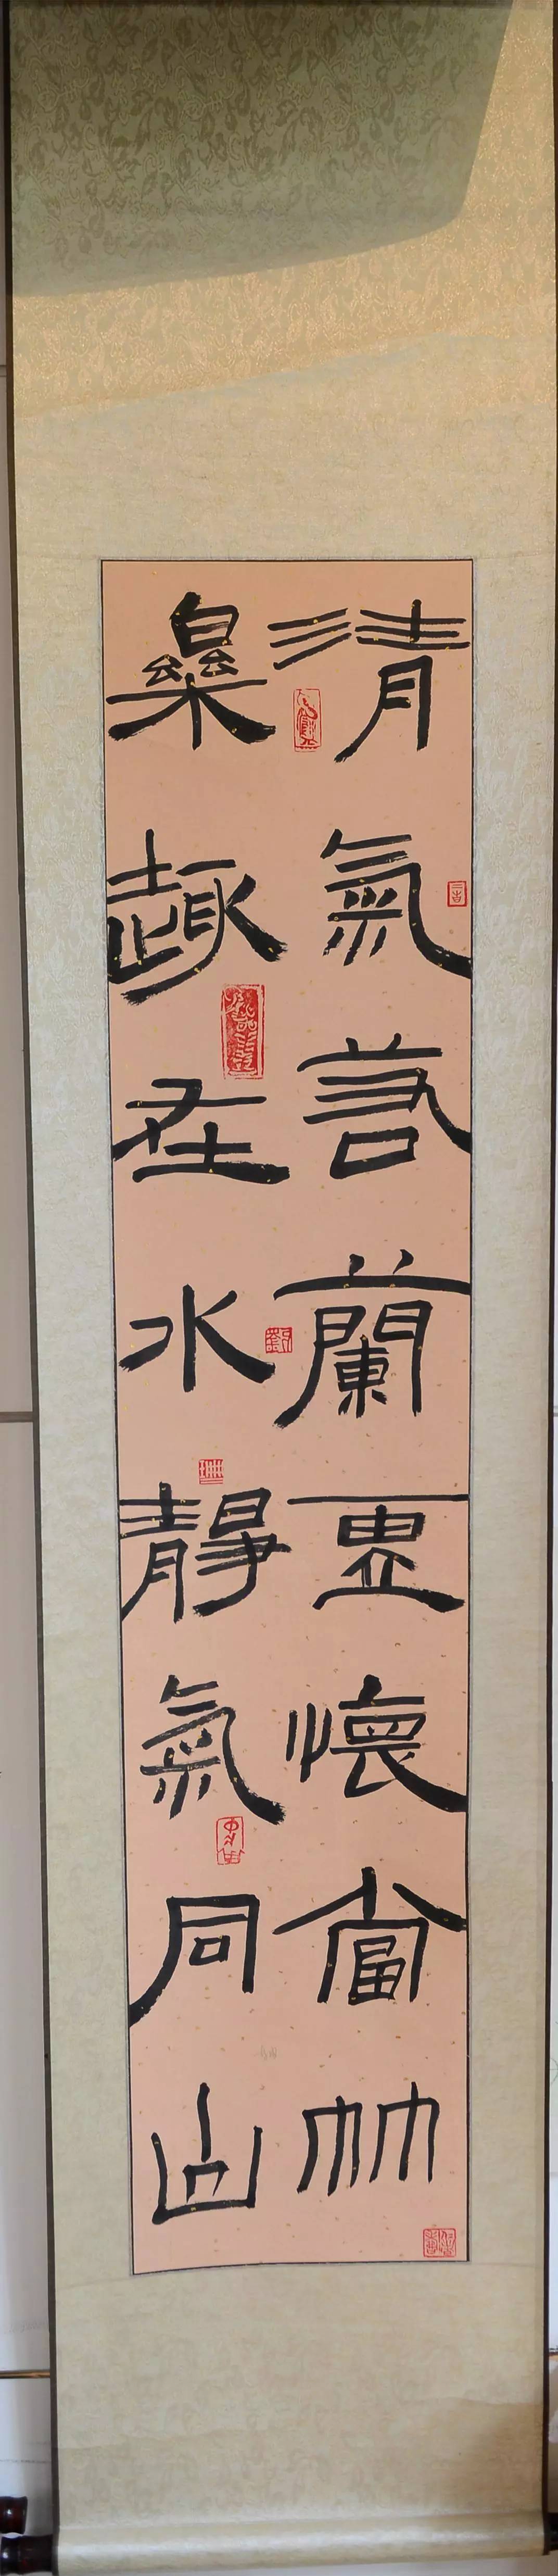 清氣若蘭虛懷當竹
樂趣在水靜氣同山